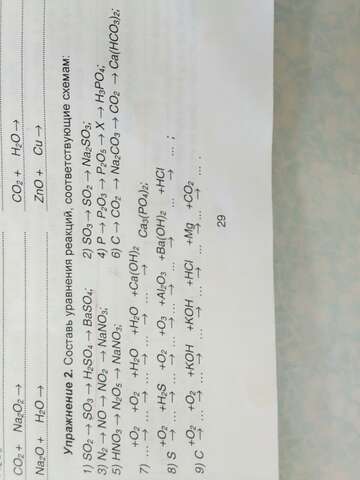 CO2 + Na2O2 →
CO2 + H2O →
Na2O + H2O →
ZnO + Cu →
Упражнение 2. Составь уравнения реакций, соответствующие схемам:
1) SO2 → SO3 → H2SO4 → BaSO4;
2) SO3 → SO2 → Na2SO3;
3) N2 → NO → NO2 → NaNO3;
4) P → P2O3 → P2O5 → X → H3PO4;
5) HNO3 → N2O5 → NaNO3;
6) C → CO2 → Na2CO3 → CO2 → Ca(HCO3)2;
+O2 +O2 +H2O +H2O +Ca(OH)2
7) ... → ... → ... → ... → ... → Ca3(PO4)2;
+O2 +H2S +O2 +O3 +Al2O3 +Ba(OH)2 +HCl
8) S → ... → ... → ... → ... → ... → ... → ... ;
+O2 +O2 +KOH +KOH +HCl +Mg +CO2
9) C → ... → ... → ... → ... → ... → ... → ... .
29